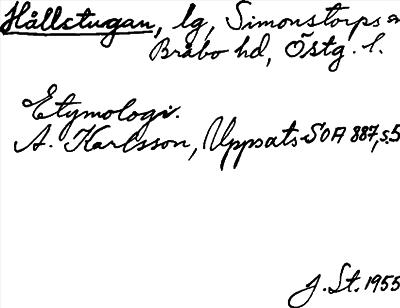 Hålletugan, lg, Simonstorps sn
Bråbo hd, Östg. l.
Etymologi.
A. Karlsson, Uppsats SOA 887, s.5
J. St. 1955